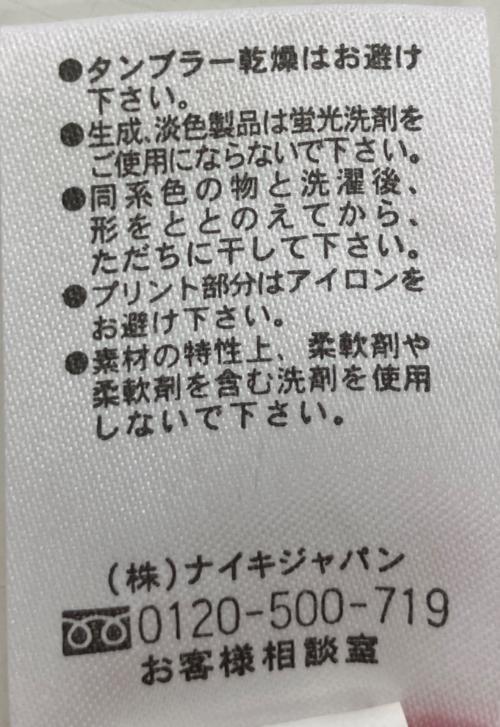 ●タンブラー乾燥はお避け
下さい。
●生成、淡色製品は蛍光洗剤を
ご使用にならないで下さい。
●同系色の物と洗濯後、
形をととのえてから、
ただちに干して下さい。
●プリント部分はアイロンを
お避け下さい。
●素材の特性上、柔軟剤や
柔軟剤を含む洗剤を使用
しないで下さい。
(株)ナイキジャパン
0120-500-719
お客様相談室